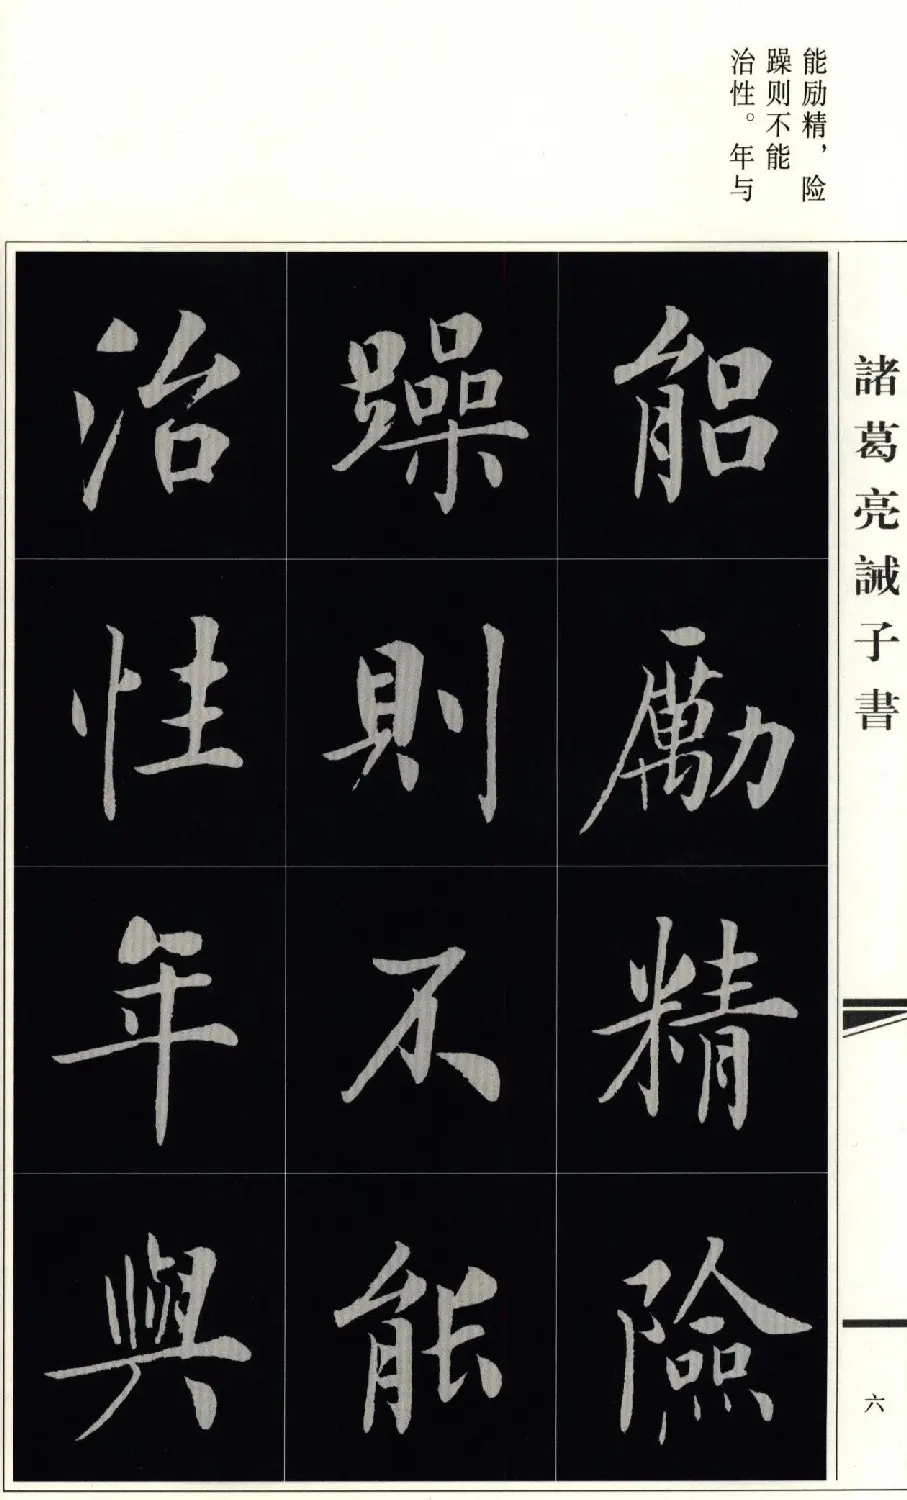 能励精，险
躁则不能
治性。年与
諸葛亮誡子書
能勵精險
躁則不能
治性年與
六